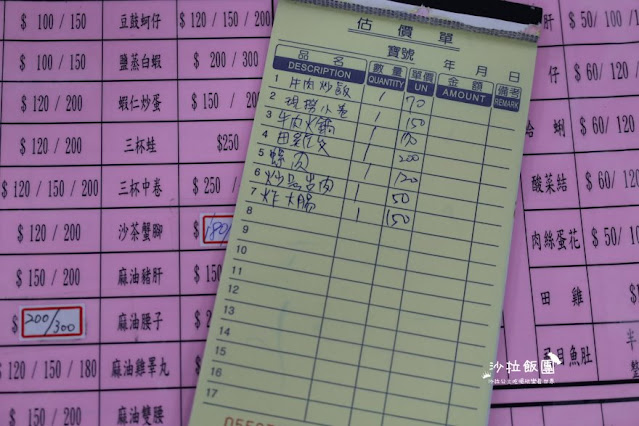 $ 100 / 150 豆鼓蚵仔 $ 120 / 150 / 200
$ 100 / 150 鹽蒸白蝦 $ / 200 / 300
$ 150 / 200 蝦仁炒蛋 $ 150 / 200
$ 120 / 200 三杯蛙 $250
$ 120 / 150 / 200 三杯中卷 $ 250 /
$ 120 / 200 沙茶蟹腳 180/
$ 150 / 200 麻油豬肝 $
$ 200/300 麻油腰子 $
$ 120 / 150 / 180 麻油雞睪丸 $
$ 150 / 200 麻油雙腰 $
估價單
寶號 年 月 日
品名 DESCRIPTION 數量 QUANTITY 單價 UN 金額 AMOUNT 備考 REMARK
1 牛肉炒飯 1 70
2 現撈小卷 1 150
3 牛肉火鍋 1
4 田雞 1 200
5 1 120
6 肉 1 50
7 炸大腸 1 150
8
9
10
11
12
13
14
15
16
17
肝 $ 50/ 100
仔 $ 60/ 120
蛤蜊 $ 60/ 120
酸菜結 $ 60/ 120
肉絲蛋花 $ 50/ 100
田雞 $
虱目魚肚 半
沙拉飯團